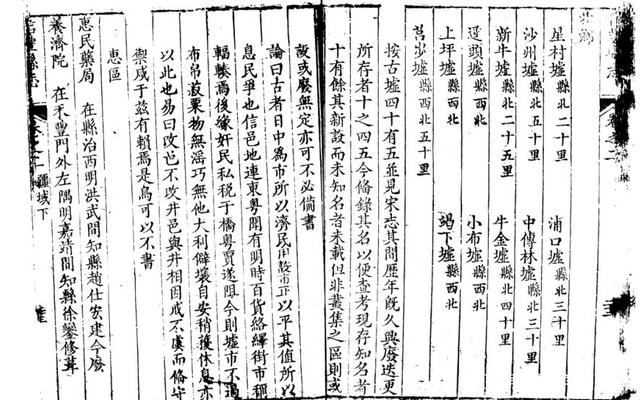 星村墟縣北二十里 浦口墟縣北三十里
沙州墟縣北五十里 中傳林墟縣北三十里
新牛墟縣北二十五里 牛金墟縣北四十里
墟縣西北 小布墟縣西北
上坪墟縣西北 下墟縣西北
墟縣西北五十里
按古墟四十有五並見宋志其間歷年旣久興廢迭更
所存者十之四五今備錄其名以便查考現存知名者
十有餘其新設而未知名者未載但非叢集之區則或
設或廢無定亦可不必備書
論曰古者日中為市所以濟民用設市正以平其值所以
息民爭也信邑地連東粵聞有明時百貨絡繹街市稱
輻輳焉後緣奸民私稅于橋粵賈遂阻今則墟市不過
布帛菽粟物無滛巧無他大利僻壤自安稍獲休息亦
以此也易曰改邑不改井邑與井相因戒不虞而脩守
禦咸于茲有賴焉是烏可以不書
惠區
惠民藥局 在縣治西明洪武間知縣趙仕宏建今廢
養濟院 在禾豐門外左隅明嘉靖間知縣徐鑾修葺
信豐縣志 卷之二 疆域下